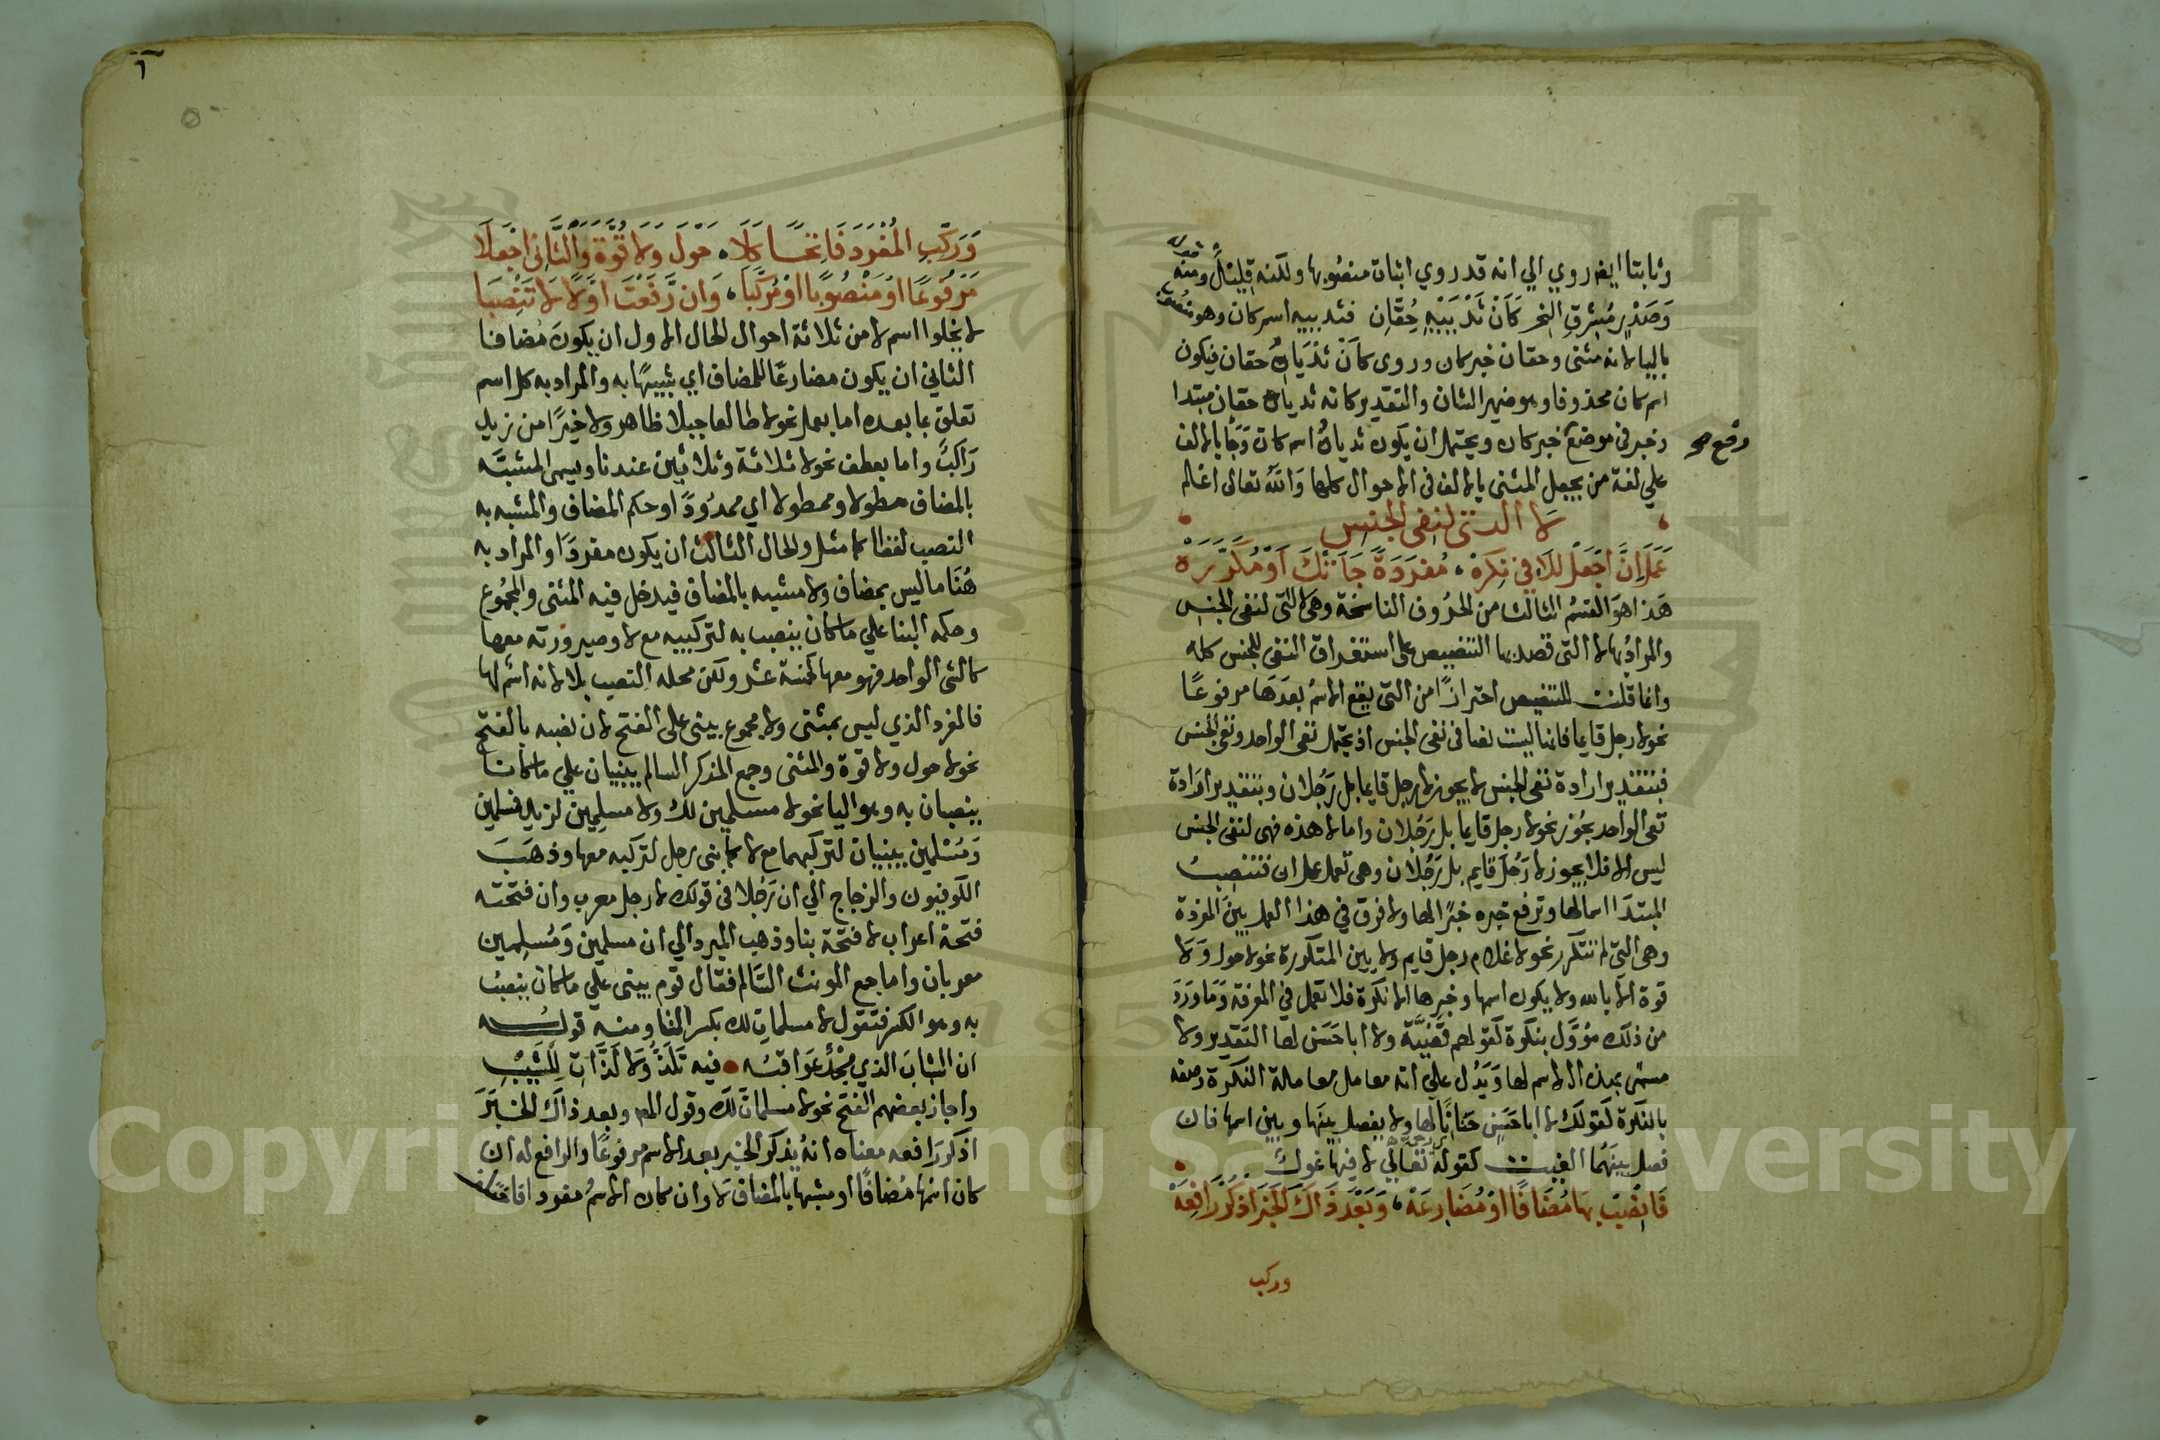 وثابتا ايضا روي الي انه قد روي اثبات منصوبها ولكنه قليل ومنه قوله
وصدر مشرق النحر كأن ثدييه حقان فثدييه اسم كان وهو منصوب
باليا لانه مثنى وحقان خبر كان وروى كأن ثدياه حقان فيكون
اسم كان محذوفا وهو ضمير الشان والتقدير كانه ثدياه حقان مبتدا
وخبر في موضع خبر كان ويحتمل ان يكون ثدياه اسم كان وجا بالالف
رفع صح
علي لغة من يجعل المثنى بالالف في الاحوال كلها والله تعالى اعلم
لا التي لنفي الجنس
عمل ان اجعل للا في نكرة ، مفردة جاءتك او مكررة
هذا هو القسم الثالث من الحروف الناسخة وهي لا التي لنفي الجنس
والمراد بها لا التي قصد بها التنصيص على استغراق النفي للجنس كله
وانما قلت للتنصيص احترازا من التي يقع الاسم بعدها مرفوعا
نحو لا رجل قايما فانها ليست نصا في نفي الجنس اذ يحتمل نفي الواحد ونفي الجنس
فبتقدير ارادة نفي الجنس لا يجوز لا رجل قايما بل رجلان وبتقدير ارادة
نفي الواحد يجوز نحو لا رجل قايما بل رجلان واما لا هذه فهي لنفي الجنس
ليس الا فلا يجوز لا رجل قايم بل رجلان وهي تعمل عمل ان فتنصب
المبتدا اسما لها وترفع خبره خبرا لها ولا فرق في هذا العمل بين المفردة
وهي التي لم تتكرر نحو لا غلام رجل قايم ولا بين المتكررة نحو لا حول ولا
قوة الا بالله ولا يكون اسمها وخبرها الا نكرة فلا تعمل في المعرفة وما ورد
من ذلك مؤول بنكرة كقولهم قضية ولا ابا حسن لها التقدير ولا
مسمى بهذا الاسم لها ويدل علي انه معامل معاملة النكرة وصفه
بالنكرة كقولك لا ابا حسن حنانا لها ولا يفصل بينها وبين اسمها فان
فصل بينهما الغيت كقوله تعالى لا فيها غول
فانصب بها مضافا او مضارعه ، وبعد ذاك الخبر اذكر رافعه
وركب
٦
٥
وركب المفرد فاتحا كلا ، حول ولا قوة والثاني اجعلا
مرفوعا او منصوبا او مركبا ، وان رفعت اولا لا تنصبا
لا يخلوا اسم لا من ثلاثة احوال الحال الاول ان يكون مضافا
الثاني ان يكون مضارعا للمضاف اي شبيها به والمراد به كل اسم
تعلق بما بعده اما بعمل نحو لا طالعا جبلا ظاهر ولا خيرا من زيد
راكب واما بعطف نحو لا ثلاثة وثلاثين عندنا ويسمى المشبه
بالمضاف مطولا وممطولا اي ممدودا وحكم المضاف والمشبه به
النصب لفظا كما مثل والحال الثالث ان يكون مفردا والمراد به
هنا ما ليس بمضاف ولا مشبه بالمضاف فيدخل فيه المثنى والمجموع
وحكمه البنا علي ما كان ينصب به لتركيبه مع لا وصيرورته معها
كالشي الواحد فهو معها كخمسة عشر ولكن محله النصب بلا لانه اسم لها
فالمفرد الذي ليس بمثنى ولا مجموع يبنى على الفتح لان نصبه بالفتح
نحو لا حول ولا قوة والمثنى وجمع المذكر السالم يبنيان علي ما كانا
ينصبان به وهو اليا نحو لا مسلمين لك ولا مسلمين لزيد فمسلمين
ومسلمين يبنيان لتركبهما مع لا كما بنى رجل لتركبه معها وذهب
الكوفيون والزجاج الي ان رجلا في قولك لا رجل معرب وان فتحته
فتحة اعراب لا فتحة بنا وذهب المبرد الي ان مسلمين ومسلمين
معربان واما جمع المونث السالم فقال قوم يبنى علي ما كان ينصب
به وهو الكسر فتقول لا مسلمات لك بكسر التا ومنه قوله
ان الشباب الذي مجد عواقبه فيه نلذ ولا لذات للشيب
واجاز بعضهم الفتح نحو لا مسلمات لك وقول المص وبعد ذاك الخبر
اذكر رافعه معناه انه يذكر الخبر بعد الاسم مرفوعا والرافع له ان
كان اسمها مضافا او مشبها بالمضاف لا وان كان الاسم مفردا
Copyright © King Saud University